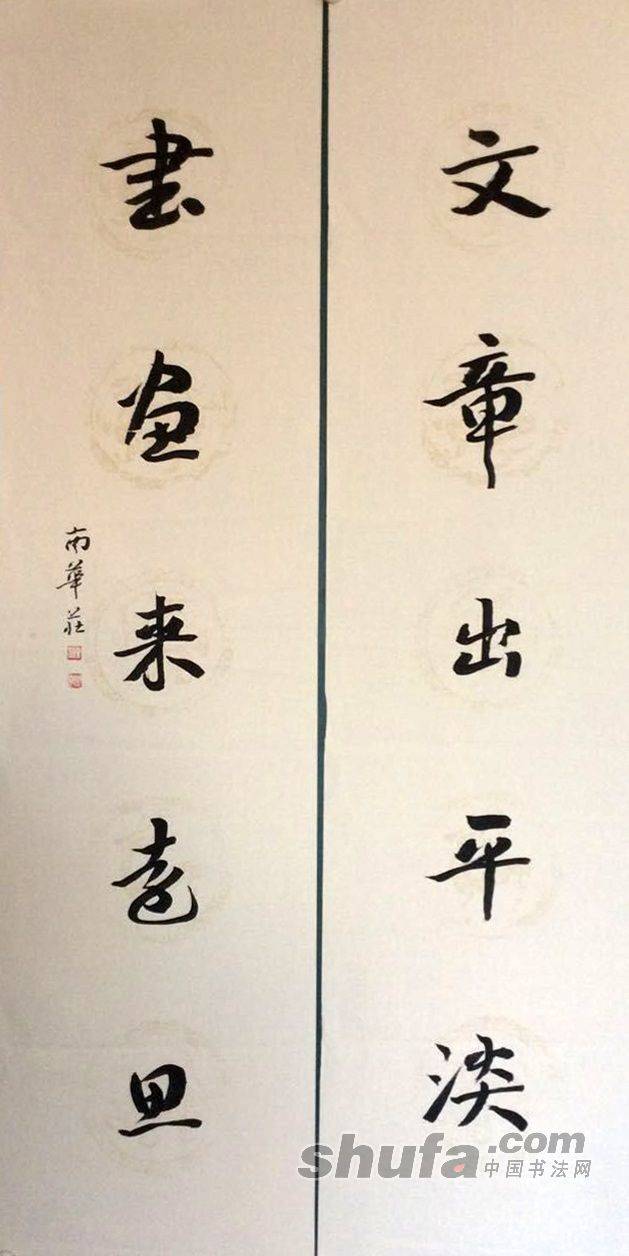 文章出平淡
書画来远思
南華莊
shufa.com
中国书法网